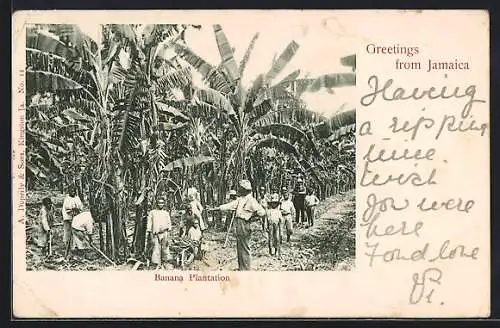 Greetings
from Jamaica
Having
a ripping
time.
wish
you were
here
Fond love
Vi.
A. Duperly & Sons, Kingston Ja. No. 11
Banana Plantation